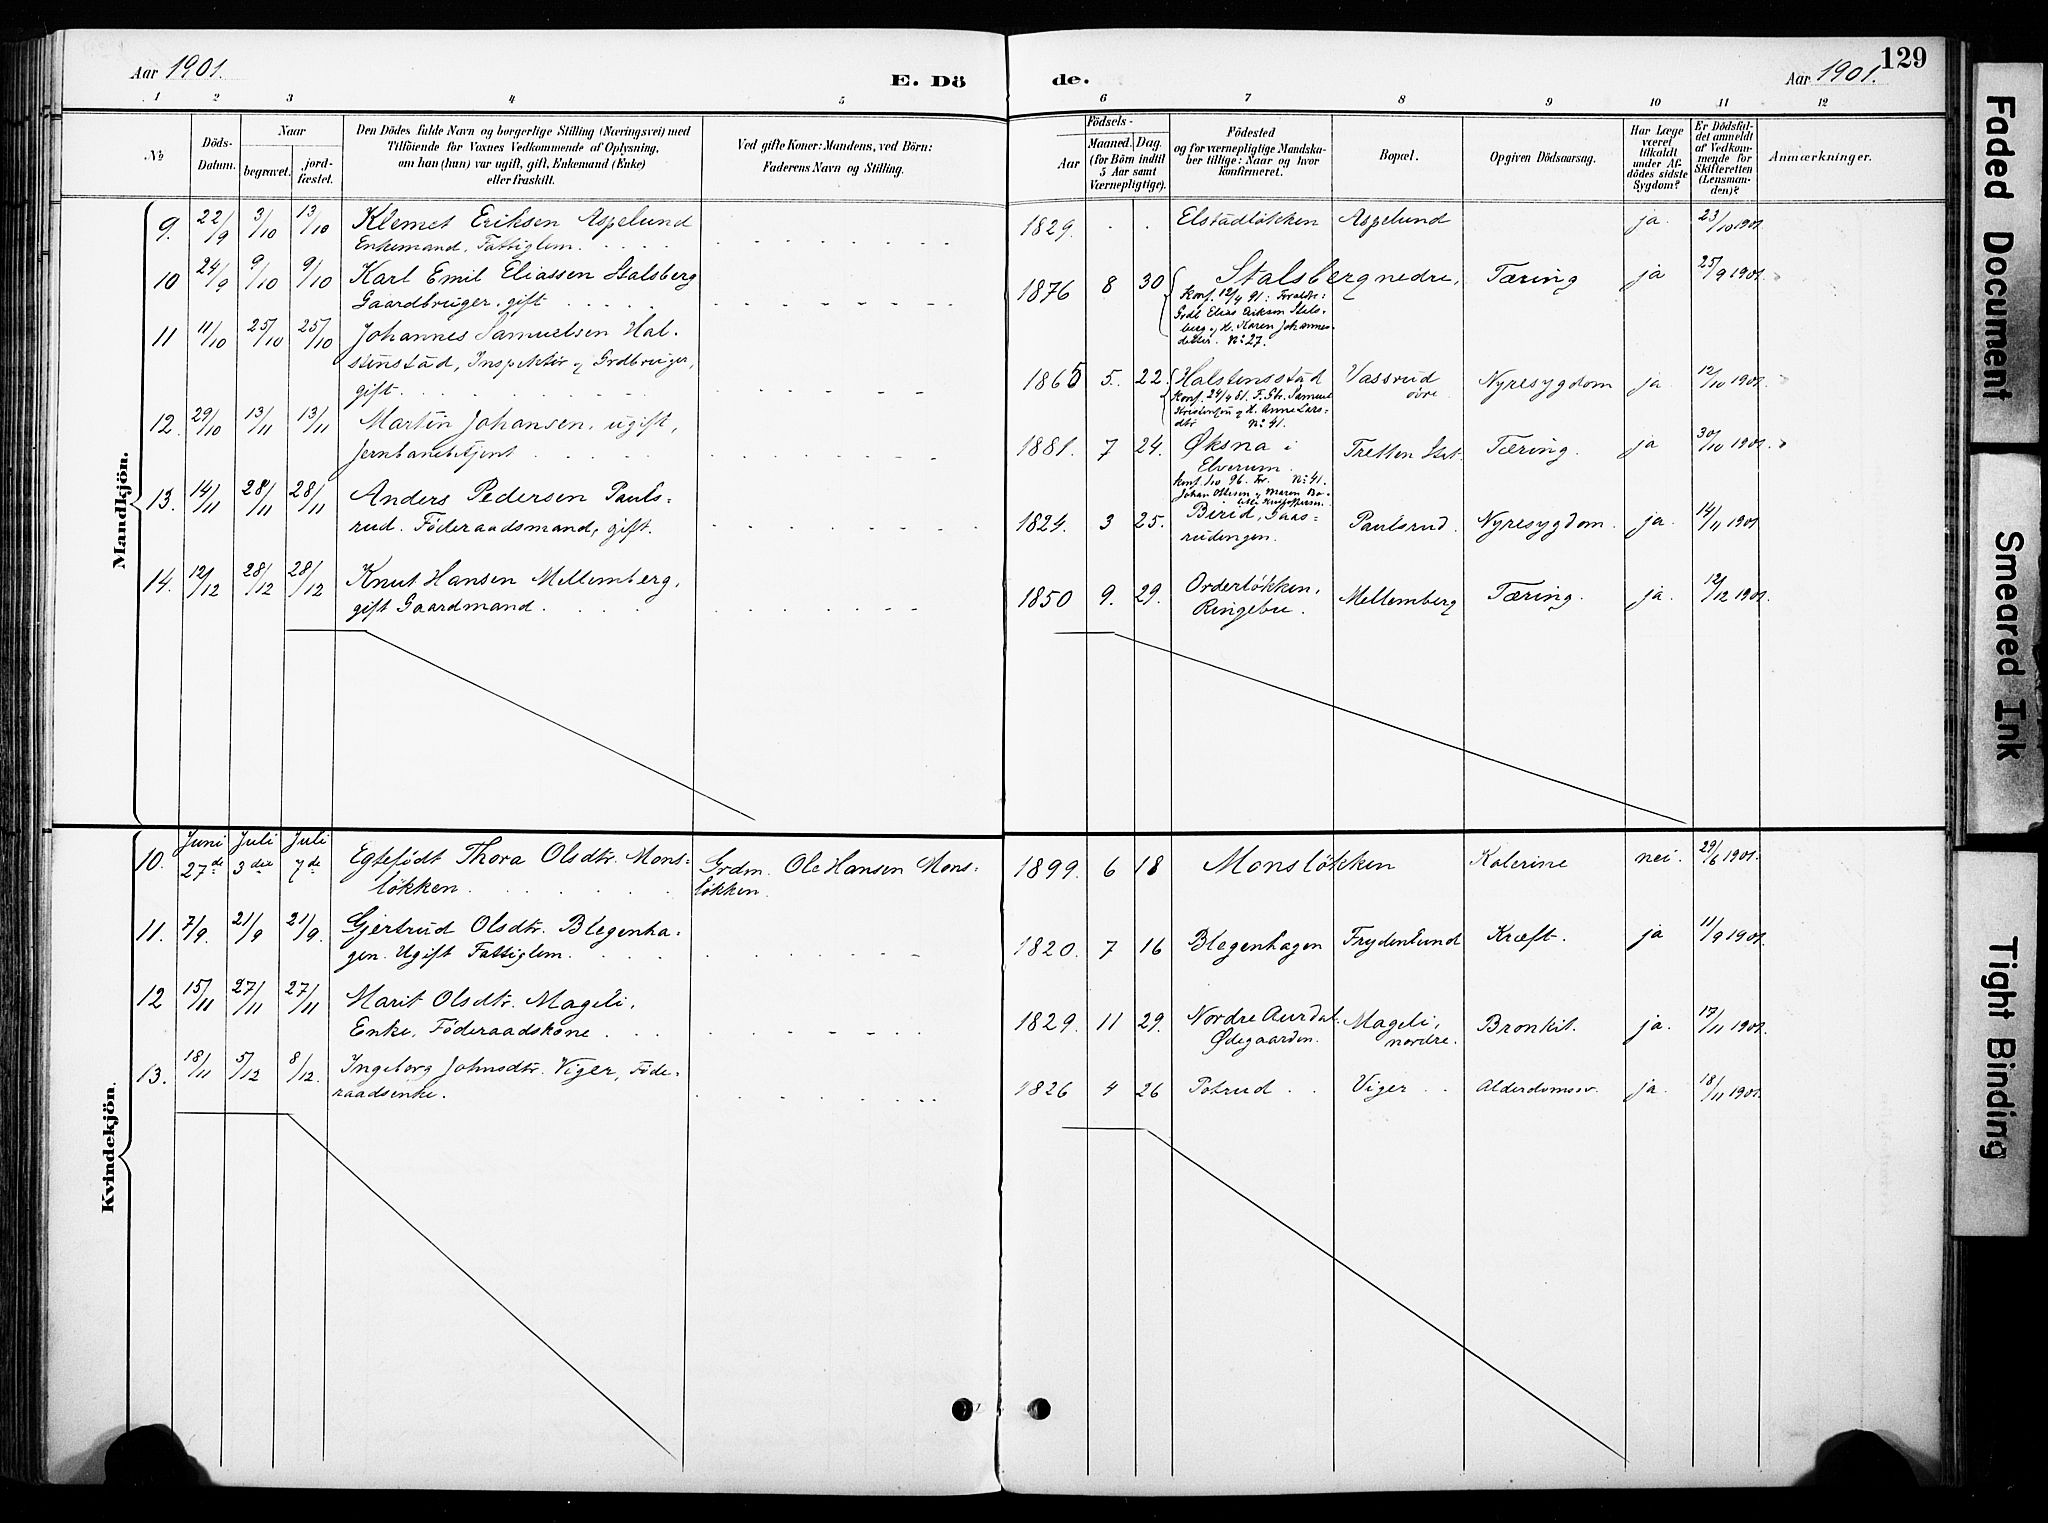 Aar 1901.
E. Dö
de.
Aar 1901.
129
1 2 3 4 5 6 7 8 9 10 11 12
№
Döds-
Datum.
Naar
begravet.
jord-
fæstet.
Den Dödes fulde Navn og borgerlige Stilling (Næringsvei) med
Tilföiende for Voxnes Vedkommende af Oplysning,
om han (hun) var ugift, gift, Enkemand (Enke)
eller fraskilt.
Ved gifte Koner: Mandens, ved Börn:
Faderens Navn og Stilling.
Födsels-
Aar
Maaned. Dag.
(for Börn indtil
5 Aar samt
Værnepligtige).
Födested
og for værnepligtige Mandska-
ber tillige: Naar og hvor
konfirmeret.
Bopæl.
Opgiven Dödsaarsag.
Har Læge
været
tilkaldt
under Af-
dödes sidste
Sygdom?
Er Dödsfal-
det anmeldt
af Vedkom-
mende for
Skifteretten
(Lensman-
den)?
Anmærkninger.
Mandkjön.
9. 22/9 3/10 13/10 Klemet Eriksen Aspelund
Enkemand, Fattiglem.
1829. Elstadløkken Aspelund ja. 23/10 1901.
10 24/9 9/10 9/10 Karl Emil Eliassen Stalsberg
Gaardbruger, gift
1876 8 30 Stalsberg nedre, Tæring ja 25/9 1901.
Konf. 12/4 91: Foreldr:
Grdb Elias Eriksen Stals-
berg og H. Karen Johannes-
detter. No 27.
11 11/10 25/10 25/10 Johannes Samuelsen Hal-
stenstad, Inspektør og Grdbruger,
gift.
1865 5. 22. Halstensstad Vassrud
øvre Nyresygdom ja. 12/10 1901.
Samuel
Anne Lars-
dtr No 41.
12. 29/10 13/11 13/11 Martin Johansen, ugift,
Jernbanebetjent
1881. 7 24. Øksna i
Elverum. Tretten Stat. Tæring. ja 30/10 1901.
No 41.
Johan Ottesen og Maren
13. 14/11 28/11 28/11 Anders Pedersen Pauls-
rud. Föderaadsmand, gift.
1824. 3 25. Birid, Gaas-
rudengen. Paulsrud. Nyresygdom. ja. 14/11 1901
14. 12/12 28/12 28/12 Knut Hansen Mellemberg,
gift Gaardmand.
1850 9. 29. Orderløkken,
Ringebu. Mellemberg Tæring. ja. 12/12 1901.
Kvindekjön.
10. Juni
27de Juli
3die Juli
7de Egtefødt Thora Olsdtr. Mons-
løkken. Grdm. Ole Hansen Mons-
løkken.
1899. 6 18 Monsløkken Kolerine nei. 29/6 1901.
11. 7/9. 21/9 21/9. Gjertrud Olsdtr. Blegenha-
gen. Ugift Fattiglem.
1820. 7 16 Blegenhagen Frydenlund Kræft. ja 11/9 1901.
12 15/11 27/11 27/11 Marit Olsdtr. Mageli,
Enke, Föderaadskone
1829. 11 29. Nordre Aurdal.
Ødegaarden. Mageli,
nordre. Bronkit. ja. 17/11 1901.
13. 18/11 5/12 8/12. Ingeborg Johnsdtr. Viger, Föde-
raadsenke.
1826 4 26 Potrud Viger Alderdomssv. ja. 18/11 1901.
Faded Document
Smeared Ink
Tight Binding